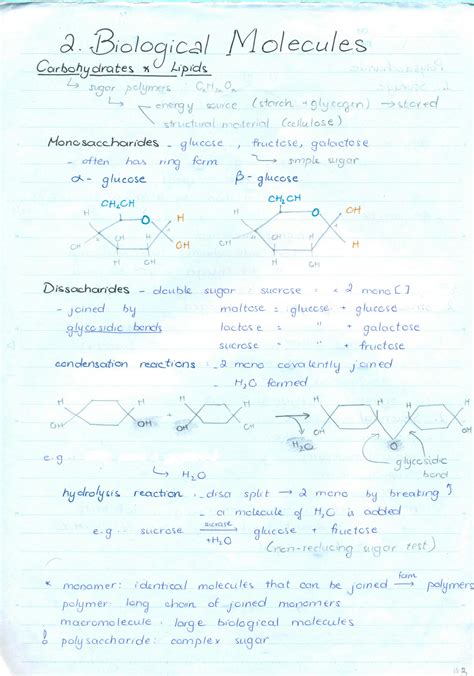 2. Biological Molecules
Carbohydrates & Lipids
↳ sugar polymers : CnH2nOn
↳ energy source (starch + glycogen) → stored
structural material (cellulose)
Monosaccharides - glucose, fructose, galactose
- often has ring form ↳ simple sugar
α - glucose β - glucose
CH2OH CH2OH
H O H H O OH
H H
OH OH OH OH H
H OH H OH
Dissacharides - double sugar : sucrose : × 2 mono [ ]
- joined by maltose = glucose + glucose
glycosidic bonds lactose = " + galactose
sucrose = " + fructose
condensation reactions : - 2 mono covalently joined
- H2O formed
H H H H H H
OH OH + OH → OH O OH
H2O
glycosidic bond
e.g
↳ H2O
hydrolysis reaction : - disa split → 2 mono by breaking
- a molecule of H2O is added
e.g - sucrose sucrase +H2O → glucose + fructose
(non-reducing sugar test)
* monomer: identical molecules that can be joined form → polymers
polymer: long chain of joined monomers
macromolecule : large biological molecules
! polysaccharide: complex sugar